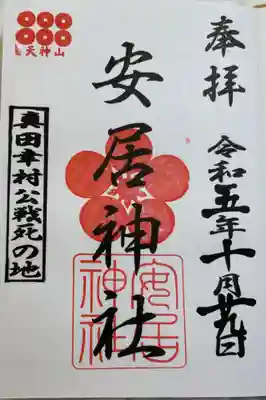 奉拝
令和五年十月廿九日
安居神社
安居神社
天神山
真田幸村公戦死の地